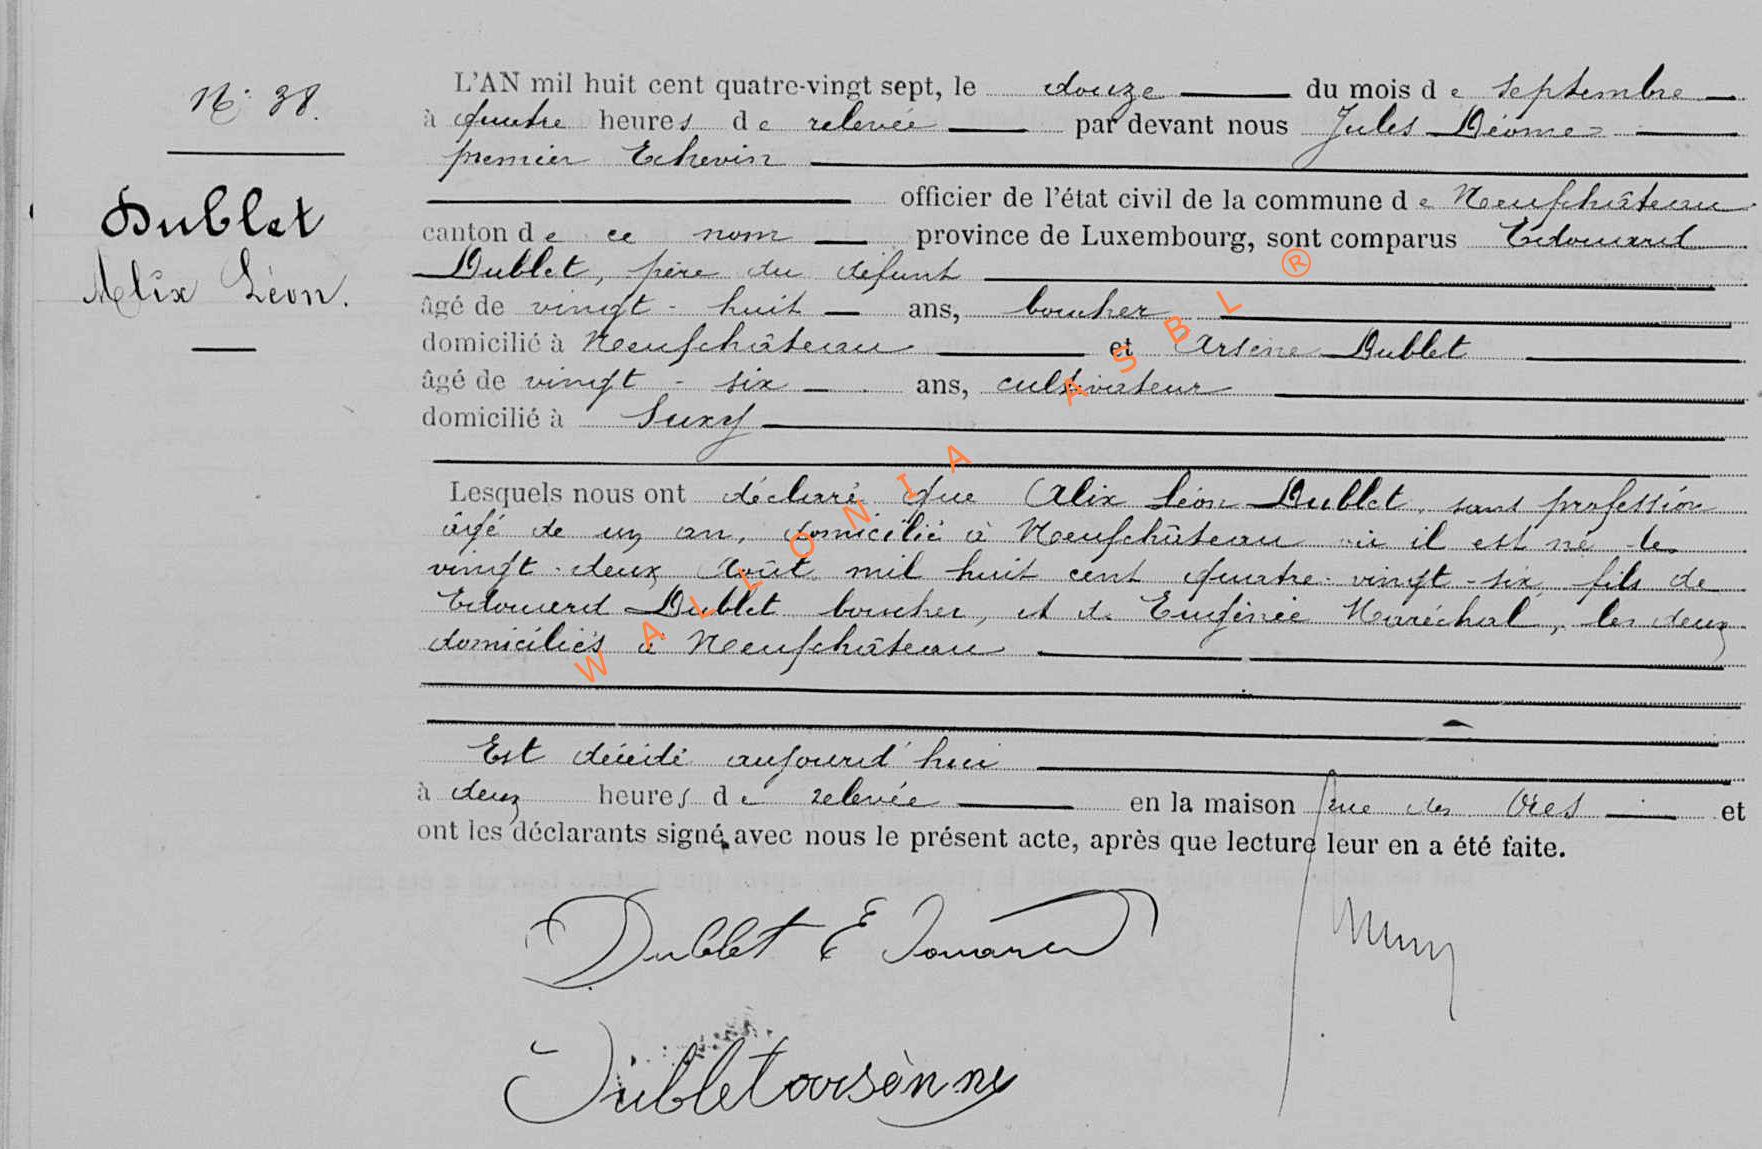 N° 38.
Dublet
Alix Léon.
L'AN mil huit cent quatre-vingt sept, le douze du mois de septembre
à quatre heures de relevée par devant nous Jules
premier Echevin
officier de l'état civil de la commune de Neufchâteau
canton de ce nom province de Luxembourg, sont comparus Edouard
Dublet, père du défunt
âgé de vingt-huit ans, boucher
domicilié à Neufchâteau et Arsène Dublet
âgé de vingt-six ans, cultivateur
domicilié à Suxy
Lesquels nous ont déclaré que Alix Léon Dublet, sans profession
âgé de un an, domicilié à Neufchâteau où il est né le
vingt-deux Août mil huit cent quatre-vingt-six, fils de
Edouard Dublet boucher, et de Eugénie Maréchal, les deux
domiciliés à Neufchâteau
Est décédé aujourd'hui
à deux heures de relevée en la maison rue des et
ont les déclarants signé avec nous le présent acte, après que lecture leur en a été faite.
Dublet Edouard
Dublet arsènne
WALLONIA ASBL ®